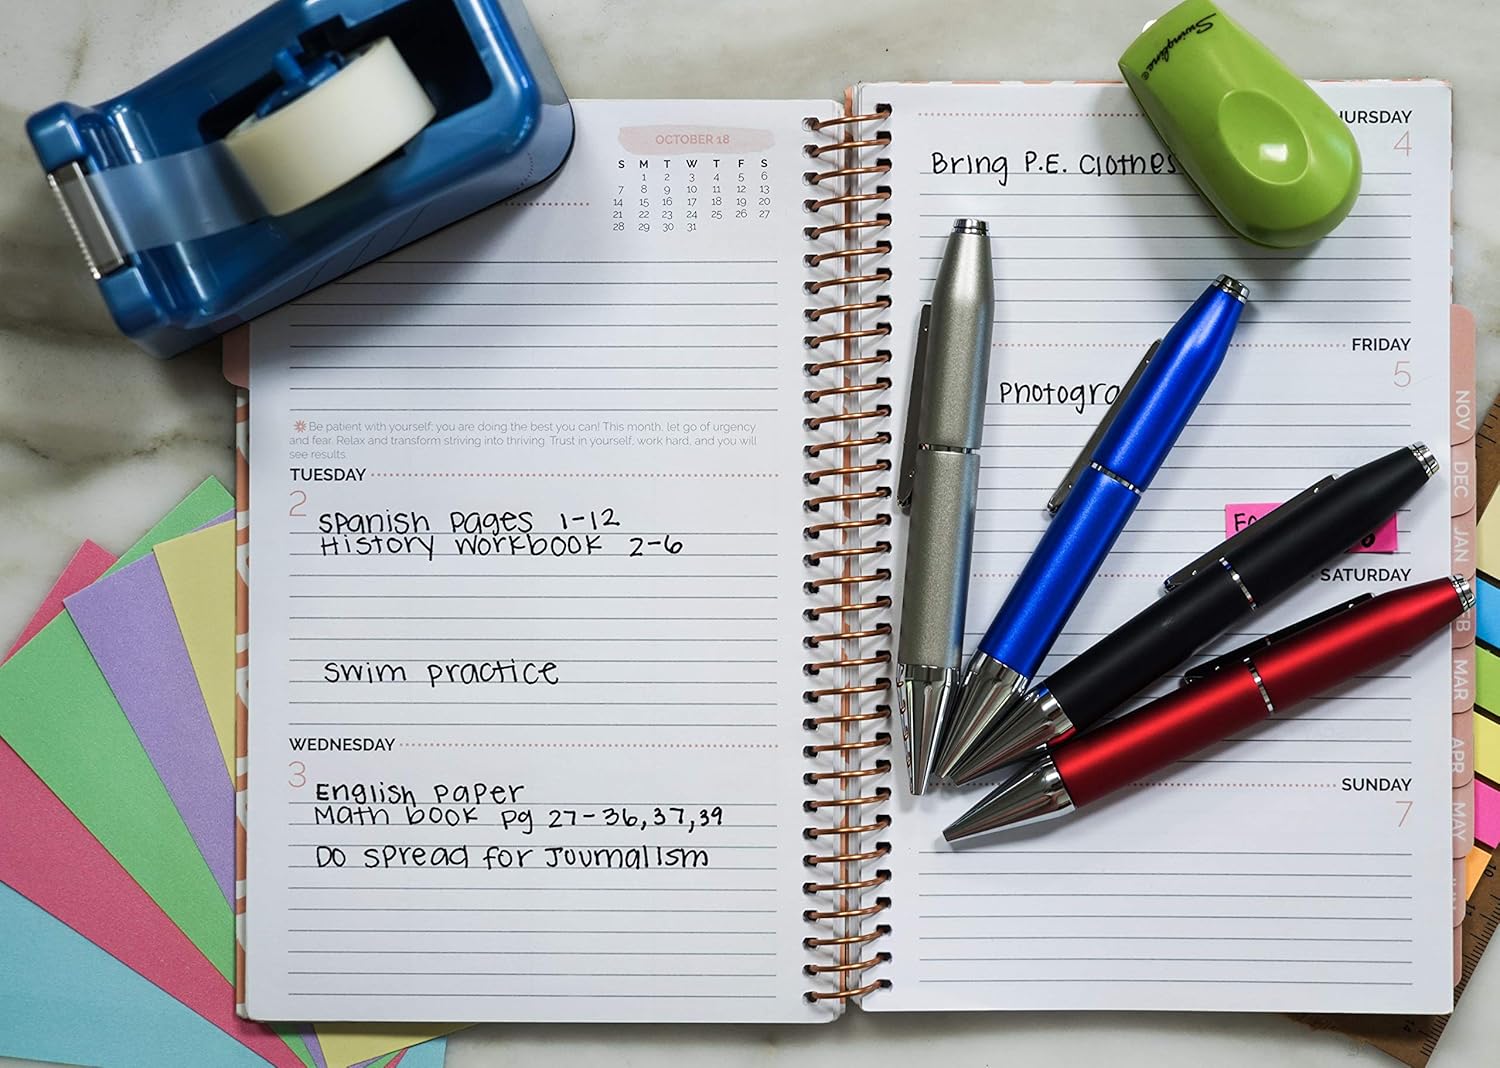 OCTOBER 18
S M T W T F S
1 2 3 4 5 6
7 8 9 10 11 12 13
14 15 16 17 18 19 20
21 22 23 24 25 26 27
28 29 30 31
Be patient with yourself; you are doing the best you can! This month, let go of urgency
and fear. Relax and transform striving into thriving. Trust in yourself, work hard, and you will
see results.
TUESDAY
2
Spanish pages 1-12
History workbook 2-6
swim practice
WEDNESDAY
3
English paper
Math book pg 27-36, 37, 39
Do spread for Journalism
Swingline
HURSDAY
4
Bring P.E. Clothes
FRIDAY
5
Photogra
SATURDAY
SUNDAY
7
NOV
DEC
JAN
EB
MAR
APR
MAY